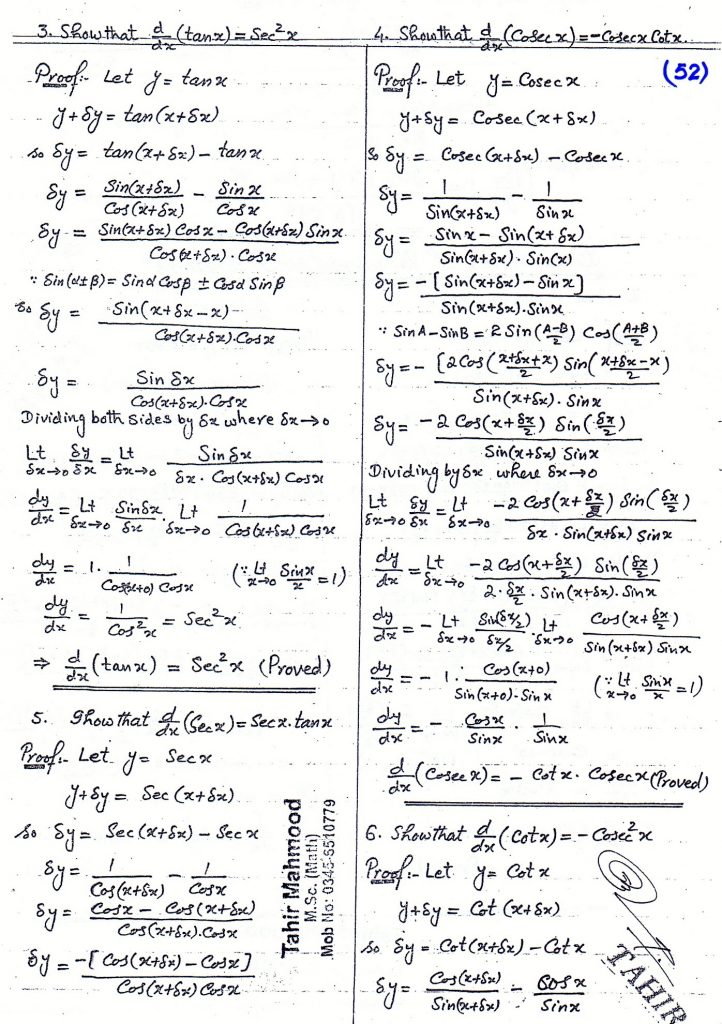 3. Show that d/dx (tanx) = Sec²x
Proof:- Let y = tanx
y+δy = tan(x+δx)
so δy = tan(x+δx) - tanx
δy = Sin(x+δx)/Cos(x+δx) - Sinx/Cosx
δy = Sin(x+δx) Cosx - Cos(x+δx) Sinx / Cos(x+δx)·Cosx
∵ Sin(α±β) = Sinα Cosβ ± Cosα Sinβ
so δy = Sin(x+δx-x) / Cos(x+δx)·Cosx
δy = Sin δx / Cos(x+δx)·Cosx
Dividing both sides by δx where δx→0
Lt δx→0 δy/δx = Lt δx→0 Sin δx / δx · Cos(x+δx) Cosx
dy/dx = Lt δx→0 Sinδx/δx · Lt δx→0 1/Cos(x+δx) Cosx
dy/dx = 1· 1/Cos(x+0) Cosx (∵ Lt x→0 Sinx/x = 1)
dy/dx = 1/Cos²x = Sec²x
⇒ d/dx (tanx) = Sec²x (Proved)
5. Show that d/dx (Secx) = Secx·tanx
Proof:- Let y = Secx
y+δy = Sec(x+δx)
so δy = Sec(x+δx) - Secx
δy = 1/Cos(x+δx) - 1/Cosx
δy = Cosx - Cos(x+δx) / Cos(x+δx)·Cosx
δy = -[Cos(x+δx) - Cosx] / Cos(x+δx) Cosx
Tahir Mahmood
M.Sc. (Math)
Mob No: 0345-6510779
4. Show that d/dx (Cosecx) = -Cosecx Cotx.
(52)
Proof:- Let y = Cosecx
y+δy = Cosec(x+δx)
So δy = Cosec(x+δx) - Cosecx
δy = 1/Sin(x+δx) - 1/Sinx
δy = Sinx - Sin(x+δx) / Sin(x+δx)·Sin(x)
δy = -[Sin(x+δx) - Sinx] / Sin(x+δx)·Sinx
∵ SinA-SinB = 2 Sin(A-B/2) Cos(A+B/2)
δy = -[2Cos(x+δx+x/2) Sin(x+δx-x/2) / Sin(x+δx)·Sinx
δy = -2 Cos(x+δx/2) Sin(δx/2) / Sin(x+δx) Sinx
Dividing by δx where δx→0
Lt δx→0 δy/δx = Lt δx→0 -2 Cos(x+δx/2) Sin(δx/2) / δx · Sin(x+δx) Sinx
dy/dx = Lt δx→0 -2 Cos(x+δx/2) Sin(δx/2) / 2·δx/2 · Sin(x+δx)·Sinx
dy/dx = - Lt δx→0 Sin(δx/2)/δx/2 · Lt δx→0 Cos(x+δx/2) / Sin(x+δx) Sinx
dy/dx = - 1· Cos(x+0) / Sin(x+0)·Sinx (∵ Lt x→0 Sinx/x = 1)
dy/dx = - Cosx/Sinx · 1/Sinx
d/dx (Cosecx) = - Cotx·Cosecx (Proved)
6. Show that d/dx (Cotx) = -Cosec²x
Proof:- Let y = Cotx
y+δy = Cot(x+δx)
so δy = Cot(x+δx) - Cotx
δy = Cos(x+δx)/Sin(x+δx) - Cosx/Sinx
TAHIR